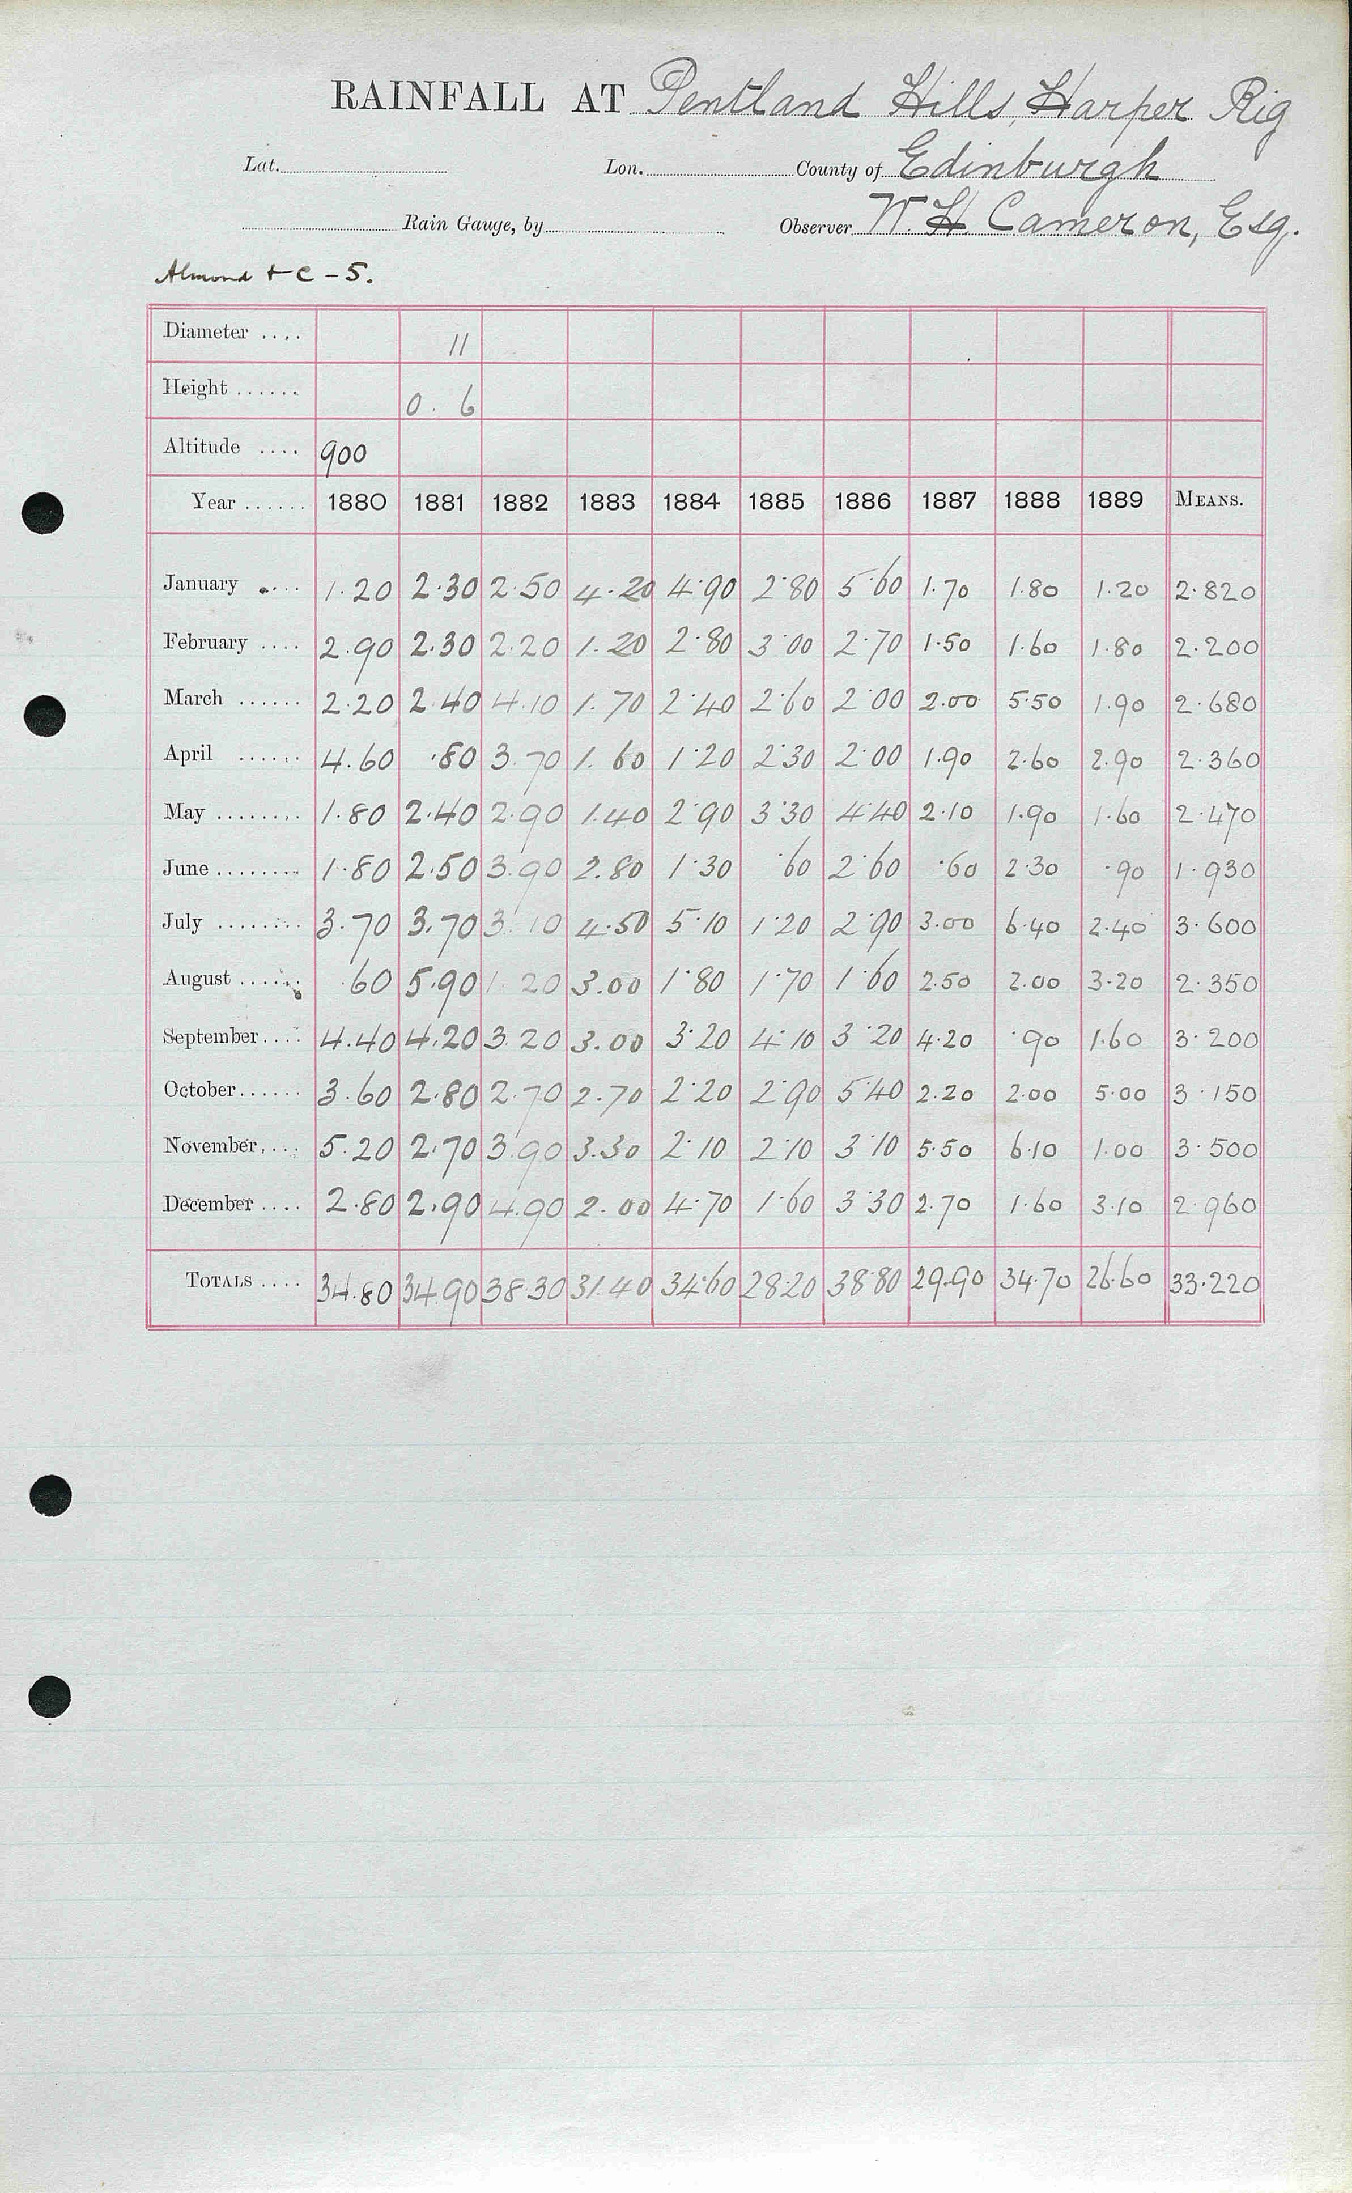 RAINFALL AT Pentland Hills, Harper Rig
Lat. Lon. County of Edinburgh
Rain Gauge, by Observer W. H. Cameron, Esq.
Almond + C - 5.
Diameter .... 11
Height ...... 0. 6
Altitude .... 900
Year ...... 1880 1881 1882 1883 1884 1885 1886 1887 1888 1889 MEANS.
January .... 1.20 2.30 2.50 4.20 4.90 2.80 5.60 1.70 1.80 1.20 2.820
February .... 2.90 2.30 2.20 1.20 2.80 3.00 2.70 1.50 1.60 1.80 2.200
March ...... 2.20 2.40 4.10 1.70 2.40 2.60 2.00 2.00 5.50 1.90 2.680
April ...... 4.60 .80 3.70 1.60 1.20 2.30 2.00 1.90 2.60 2.90 2.360
May ........ 1.80 2.40 2.90 1.40 2.90 3.30 4.40 2.10 1.90 1.60 2.470
June ........ 1.80 2.50 3.90 2.80 1.30 .60 2.60 .60 2.30 .90 1.930
July ........ 3.70 3.70 3.10 4.50 5.10 1.20 2.90 3.00 6.40 2.40 3.600
August ...... .60 5.90 1.20 3.00 1.80 1.70 1.60 2.50 2.00 3.20 2.350
September .... 4.40 4.20 3.20 3.00 3.20 4.10 3.20 4.20 .90 1.60 3.200
October ...... 3.60 2.80 2.70 2.70 2.20 2.90 5.40 2.20 2.00 5.00 3.150
November .... 5.20 2.70 3.90 3.30 2.10 2.10 3.10 5.50 6.10 1.00 3.500
December .... 2.80 2.90 4.90 2.00 4.70 1.60 3.30 2.70 1.60 3.10 2.960
TOTALS .... 34.80 34.90 38.30 31.40 34.60 28.20 38.80 29.90 34.70 26.60 33.220